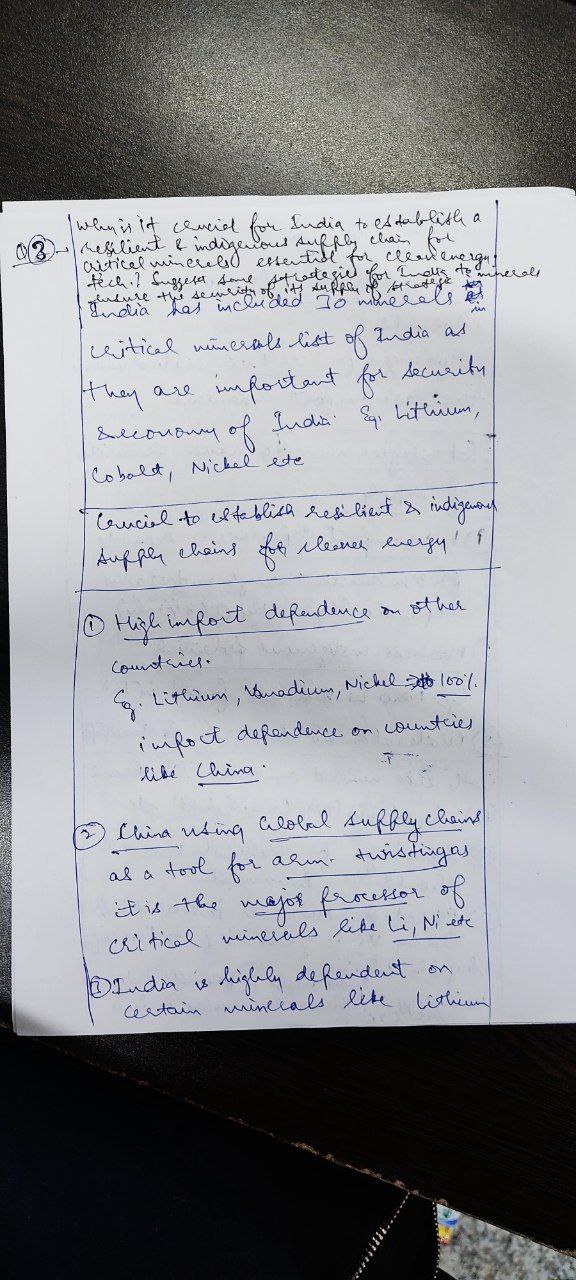 Q3 → Why is it crucial for India to establish a
resilient & indigenous supply chain for
critical minerals essential for clean energy
tech.? Suggest some strategies for India to
ensure the security of its supply of strategic minerals
India has included 30 minerals in
critical minerals list of India as
they are important for security
& economy of India. Eg. Lithium,
Cobalt, Nickel etc
Crucial to establish resilient & indigenous
supply chains for cleaner energy
① High import dependence on other
countries.
Eg. Lithium, Vanadium, Nickel → 100%
import dependence on countries
like China.
② China using Global supply chains
as a tool for arm-twisting as
it is the major processor of
critical minerals like Li, Ni etc
③ India is highly dependent on
certain minerals like Lithium